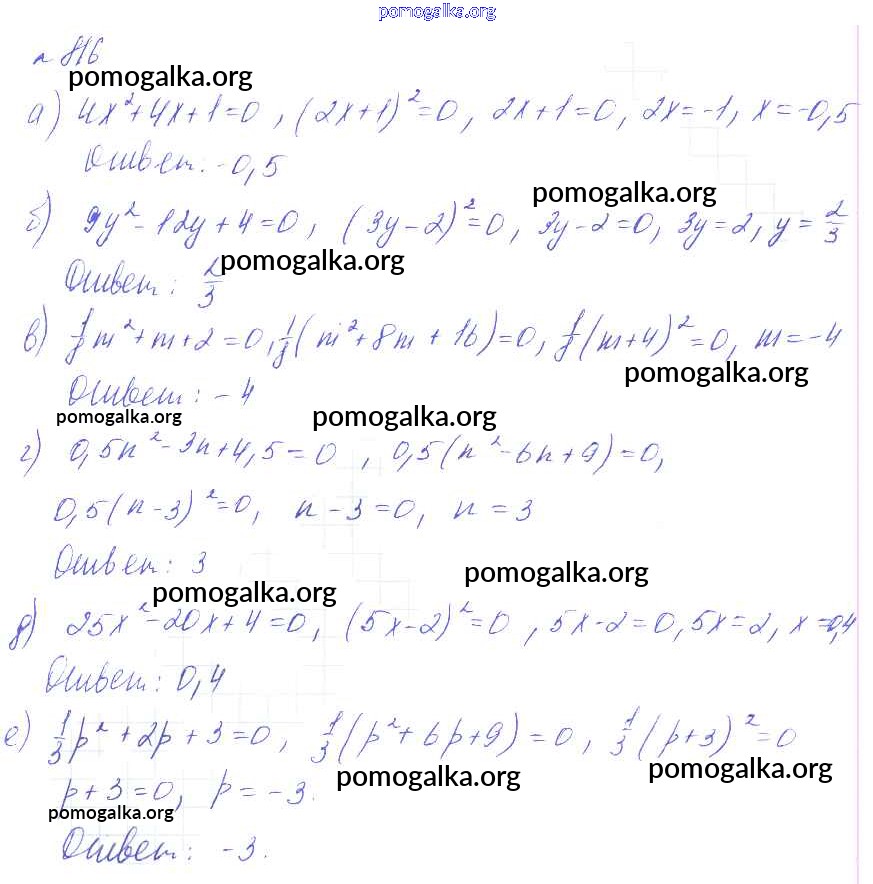 pomogalka.org
№ 816
pomogalka.org
а) 4x² + 4x + 1 = 0, (2x + 1)² = 0, 2x + 1 = 0, 2x = -1, x = -0,5
Ответ: -0,5
pomogalka.org
б) 9y² - 12y + 4 = 0, (3y - 2)² = 0, 3y - 2 = 0, 3y = 2, y = 2/3
Ответ: 2/3
pomogalka.org
в) 1/8 m² + m + 2 = 0, 1/8 (m² + 8m + 16) = 0, 1/8 (m + 4)² = 0, m = -4
pomogalka.org
Ответ: -4
pomogalka.org pomogalka.org
г) 0,5n² - 3n + 4,5 = 0, 0,5(n² - 6n + 9) = 0,
0,5(n - 3)² = 0, n - 3 = 0, n = 3
Ответ: 3
pomogalka.org
pomogalka.org
д) 25x² - 20x + 4 = 0, (5x - 2)² = 0, 5x - 2 = 0, 5x = 2, x = 0,4
Ответ: 0,4
е) 1/3 p² + 2p + 3 = 0, 1/3 (p² + 6p + 9) = 0, 1/3 (p + 3)² = 0
pomogalka.org pomogalka.org
p + 3 = 0, p = -3.
pomogalka.org
Ответ: -3.